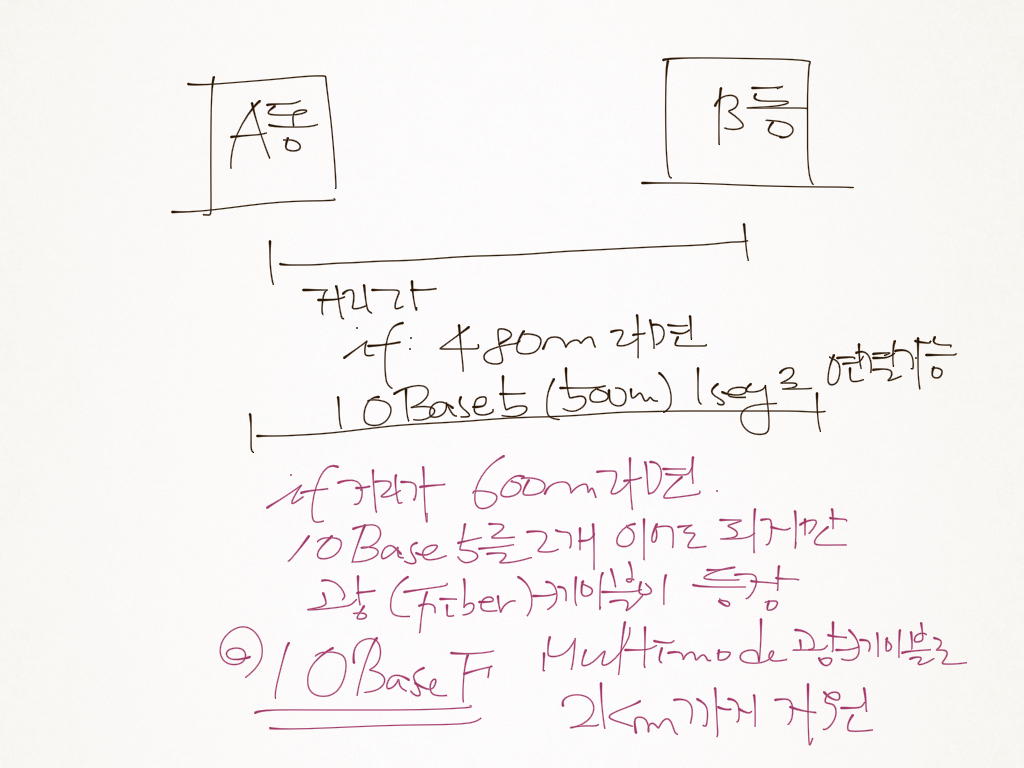 A동
B동
거리가
if: 480m라면
10Base5 (500m) 1seg로 연결가능
if 거리가 600m라면.
10Base5를 2개 이어도 되지만
광(Fiber)케이블이 등장
@ 10BaseF Multimode 광케이블로
2Km까지 지원